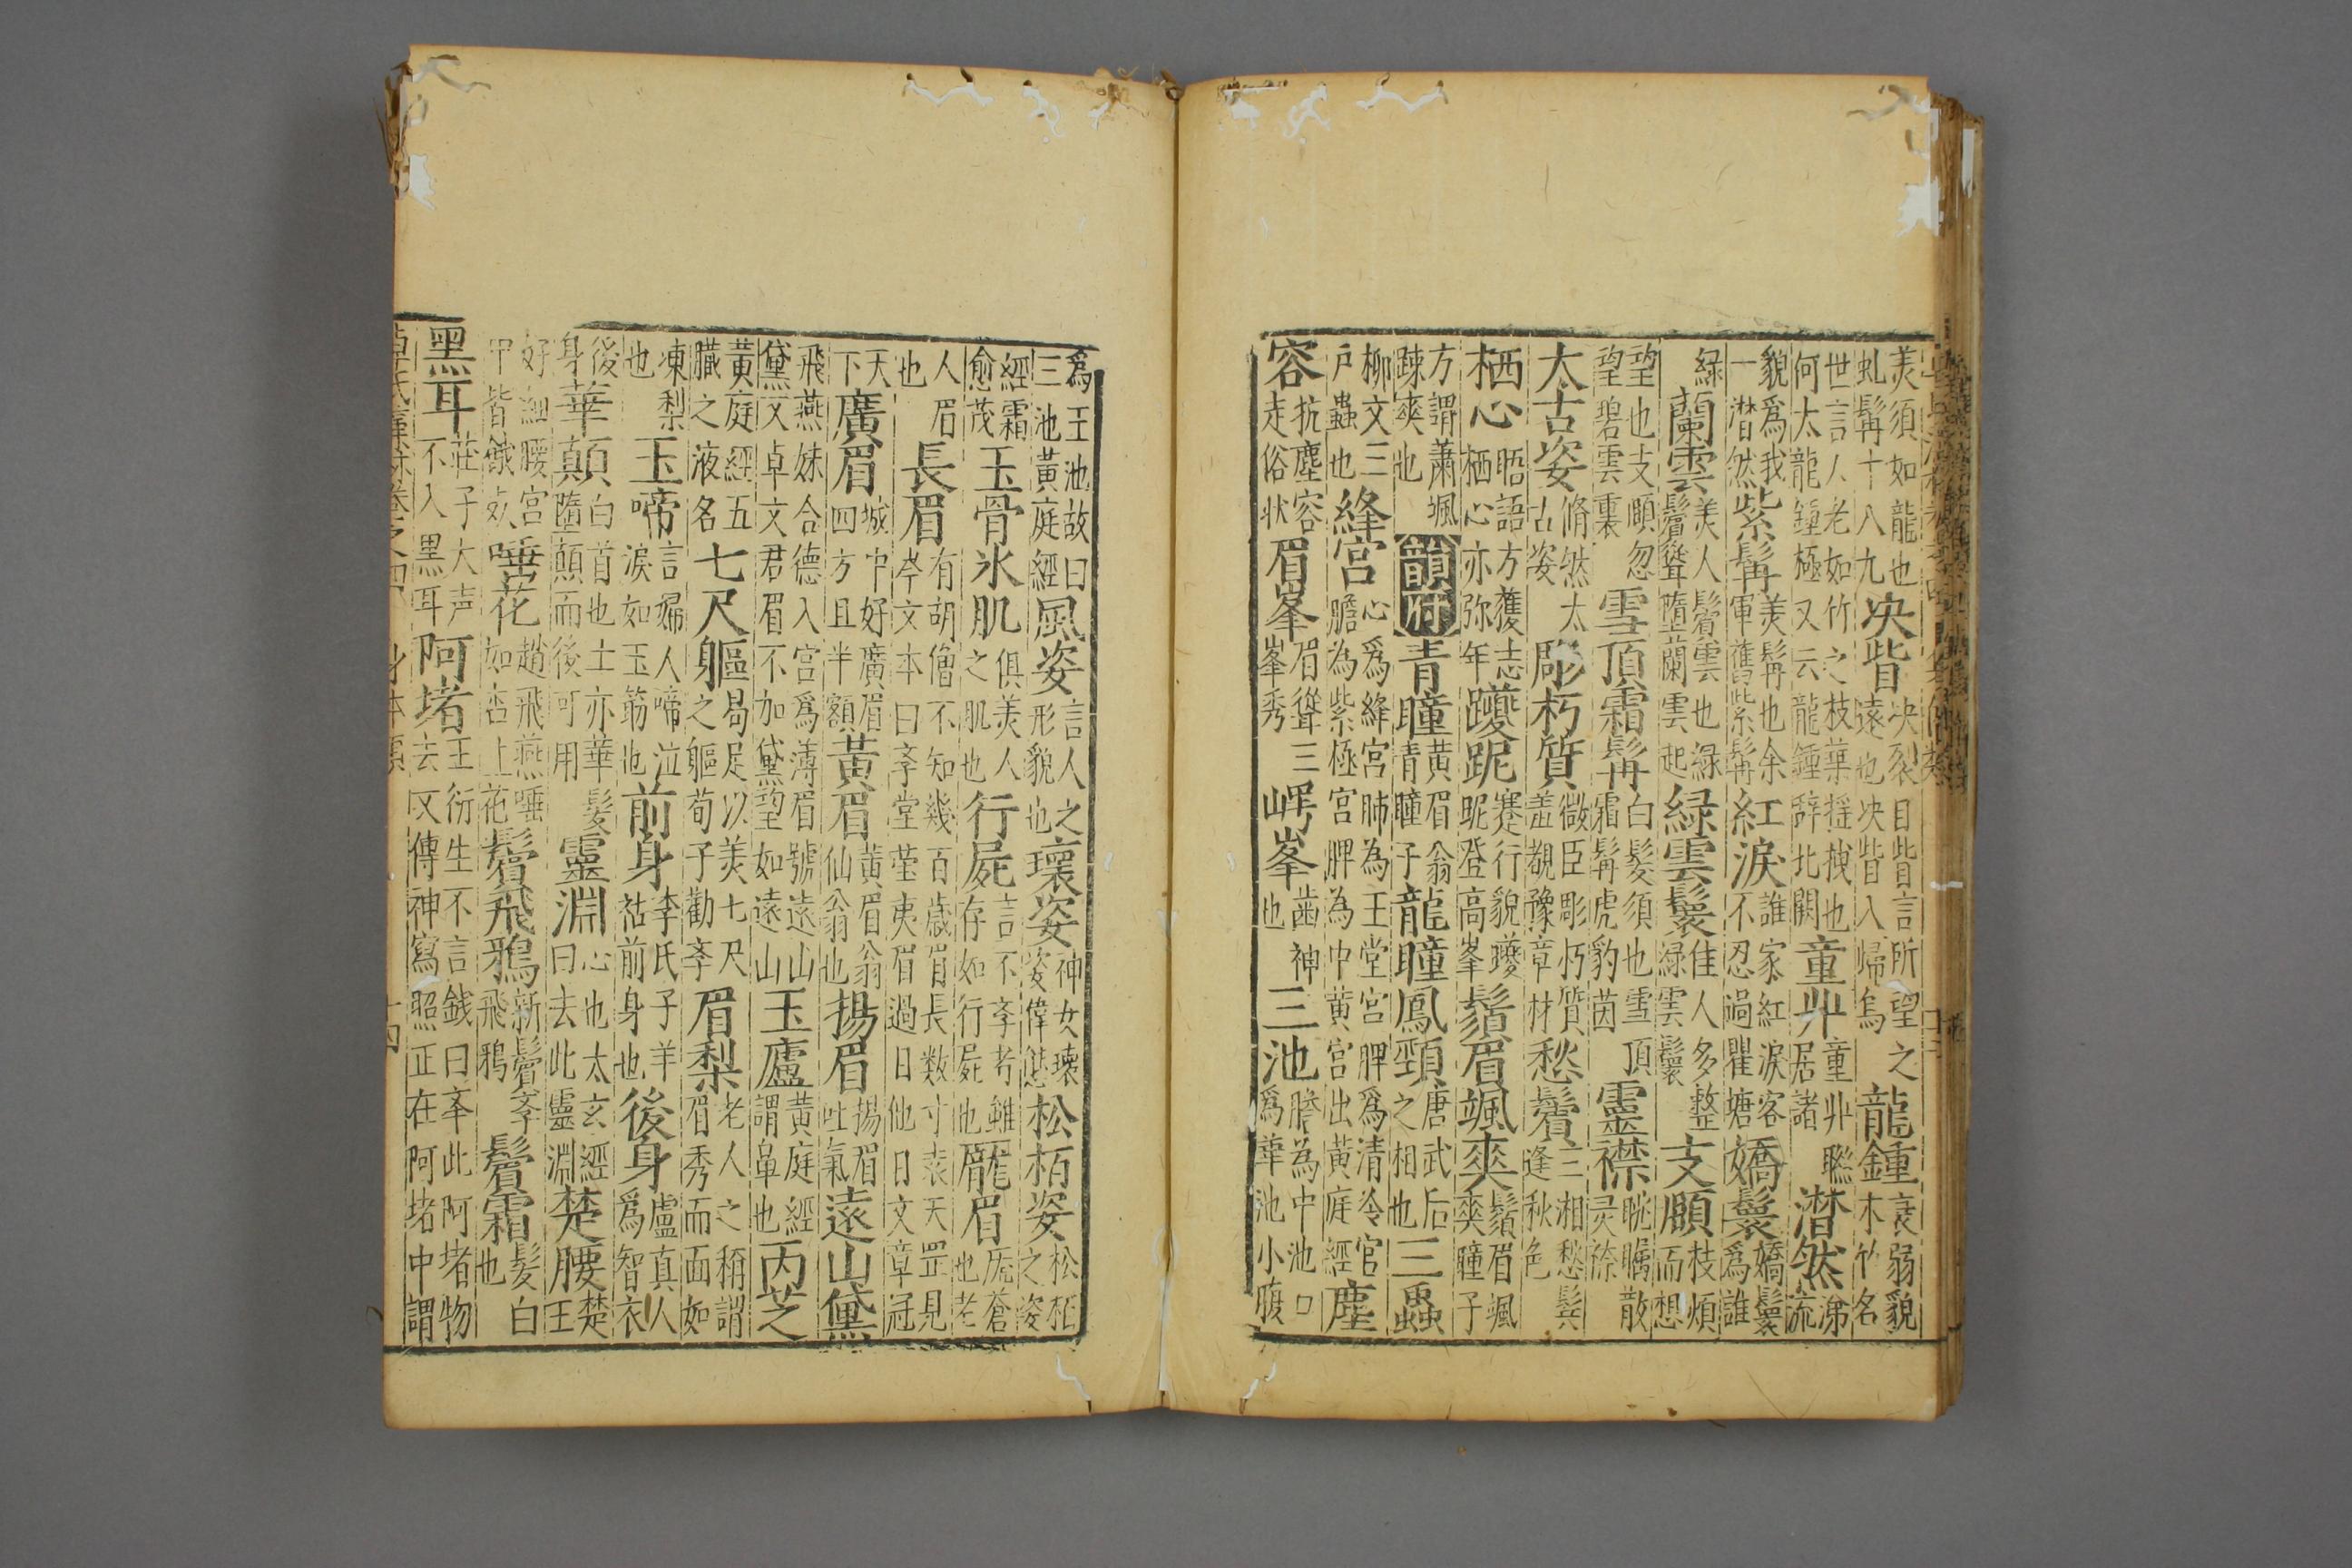 美須如龍也 虬髯十八九 决眥 决裂目眥言所望之遠也决眥入歸鳥 龍鍾 衰弱貌木竹名
世言人老如竹之枝葉揺拽也何太龍鍾極又云龍鍾辞北闕 童丱 童丱聮居諸 潸然 涕流
貌爲我一潸然 紫髯 美髯也余軍舊紫髯 紅淚 誰家紅淚客不忍過瞿塘 嬌鬟 嬌鬟爲誰
緑 蘭雲 美人鬢雲也緑鬢聳墮蘭雲起 緑雲鬟 佳人多整緑雲鬟 支頤 枝煩而想
望也支頤忽望碧雲裏 雪頂霜髯 白髮須也雪頂霜髯虎豹茵 靈襟 眺矚散灵襟
太古姿 脩然太古姿 彫朽質 微臣彫朽質羞覩豫章材 愁鬢 三湘愁鬂逢秋色
栖心 晤語方獲志栖心亦弥年 躨跜 蹇行貌躨跜登高峯 鬚眉颯爽 鬚眉颯爽瞳子
方謂蕭颯踈爽也 韻府 青瞳 黄眉翁青瞳子 龍瞳鳳頸 唐武后之相也 三蟲
柳文三戸蟲也 絳宮 心爲絳宮肺為玉堂宮脾爲清冷官膽為紫極宮脾為中黄宮出黃庭經 塵
容 抗塵容走俗状 眉峯 眉聳三峯秀 崿峯 齒神也 三池 膽為中池口爲華池小腹
爲玉池故曰三池黃庭經 風姿 言人之形貌也 瓌姿 神女瓌姿偉態 松栢姿 松栢之姿
經霜愈茂 玉骨氷肌 俱美人之肌也 行屍 言不孝者雖存如行屍也 厖眉 厖蒼也老
人眉也 長眉 有胡僧不知幾百歳眉長数寸袁天罡見岑文本曰孝堂瑩夷眉過日他日文章冠
天下 廣眉 城中好廣眉四方且半額 黃眉 黄眉翁仙翁也 揚眉 揚眉吐氣 遠山黛
飛燕妹合德入宮爲薄眉號遠山黛又卓文君眉不加黛望如遠山 玉廬 黃庭經謂鼻也 丙芝
黃庭經五臓之液名 七尺軀 曷足以美七尺之軀荀子勸孝 眉梨 老人之稱謂眉秀而面如
凍梨也 玉啼 言婦人啼泣淚如玉筋也 前身 李氏子羊祜前身也 後身 盧真人爲智衣
後身 華顛 白首也士亦華髮隳顛而後可用 靈淵 心也太玄經曰去此靈淵 楚腰 楚王
好細腰宮中皆餓死 唾花 趙飛燕唾如杏上花 鬢飛鴉 新鬢孝飛鴉 鬢霜 髮白也
黑耳 莊子大声不入黑耳 阿堵 王衍生不言錢曰夲此阿堵物去又傳神寫照正在阿堵中謂